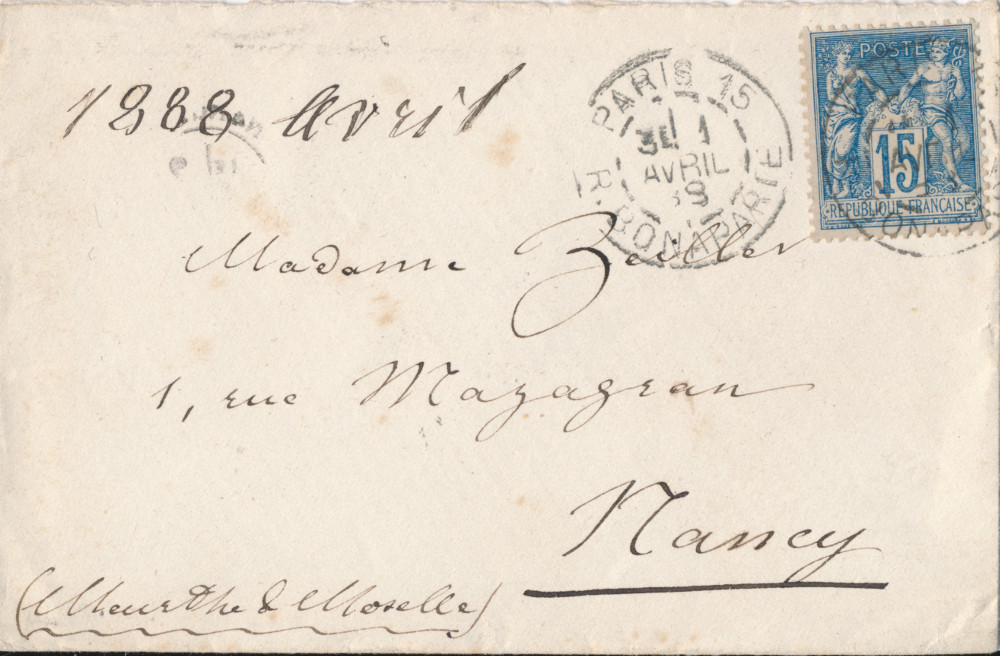 1888 Avril
PARIS 15
3E 1
AVRIL
88
R. BONAPARTE
POSTE
15
REPUBLIQUE FRANÇAISE
Madame Zeiller
1, rue Mazagran
Nancy
(Meurthe & Moselle)